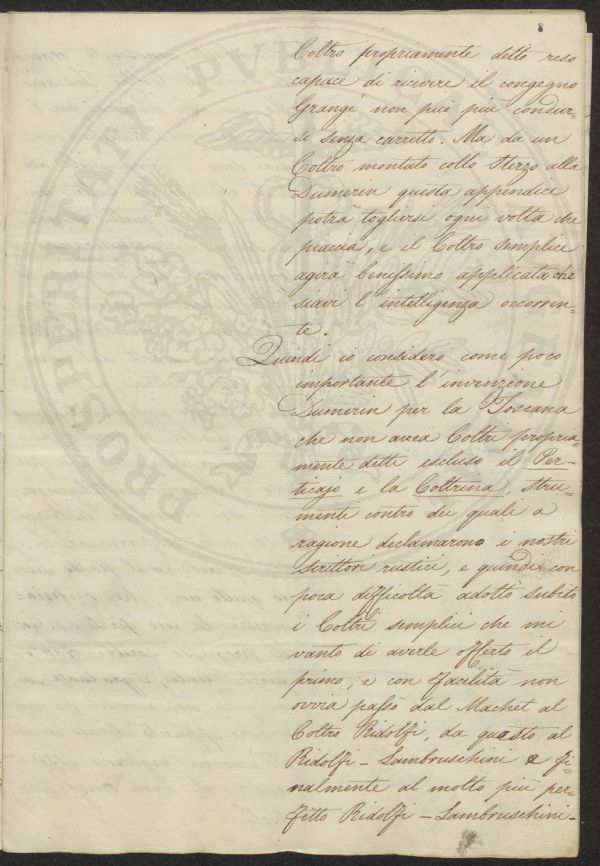 8
Coltro propriamente detto reso
capace di ricevere il congegno
Grangé non può più condur-
si senza carretto. Ma da un
Coltro montato collo sterzo alla
Dumerin questa appendice
potrà togliersi ogni volta che
piaccia, e il Coltro semplice
agirà benissimo applicata che
siavi l'intelligenza occorren-
te.
Quindi io considero come poco
importante l'invenzione
Dumerin per la Toscana
che non avea Coltri propria-
mente detti escluso il Per-
ticajo e la Coltrina, stru-
menti contro dei quale a
ragione declamarono i nostri
scrittori rustici, e quindi con
poca difficoltà adottò subito
i Coltri semplici che mi
vanto di averle offerto il
primo, e con facilità non
ovvia passò dal Machet al
Coltro Ridolfi, da questo al
Ridolfi - Lambruschini e fi-
nalmente al molto più per-
fetto Ridolfi - Lambruschini -
PROSPERITATI PVBLICAE